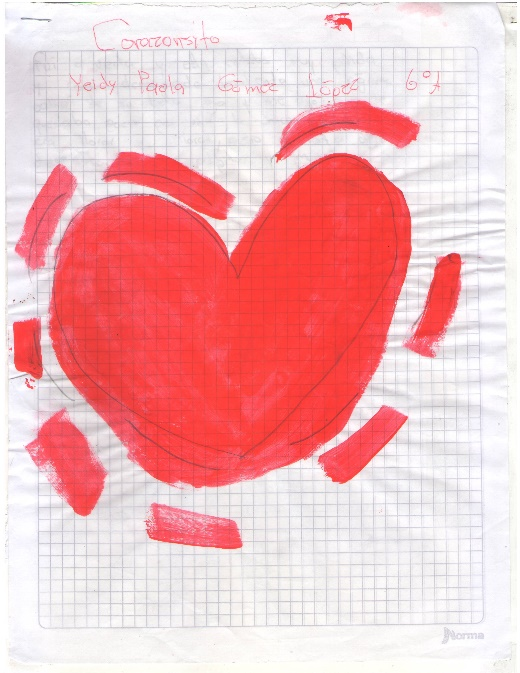 Corazonsito
Yeidy Paola Gómez López 6°A
Norma